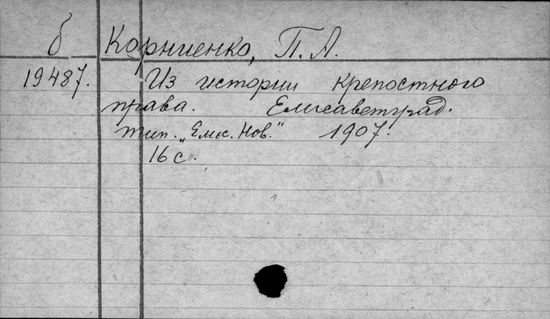 б Корниенко, П. А.
19487. Из истории крепостного
права. Елисаветград.
тип. „Емс. Нов." 1907.
16 с.